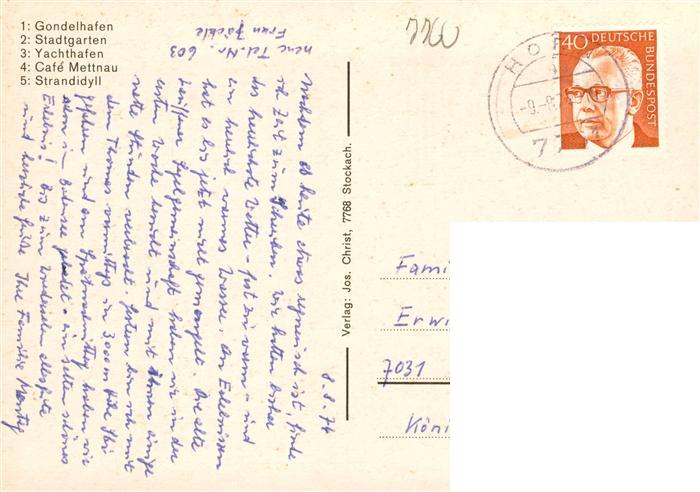 1: Gondelhafen
2: Stadtgarten
3: Yachthafen
4: Café Mettnau
5: Strandidyll
neue Tel.Nr. 603
Frau
8.8.74
Nachdem es heute etwas regnerisch ist, finde
ich Zeit zum Schreiben. Wir hatten bisher
das herrlichste Wetter - fast zu warm - und
ein herrlich warmes Wasser. An Erlebnissen
hat es bis jetzt nicht gemangelt. Die alte
Segelgemeinschaft haben wir in der
ersten Woche besucht und mit ihnen einige
nette Stunden verbracht. Gestern bin ich mit
dem vormittags in 3000 m Höhe Ski
gefahren und am Spätnachmittag haben wir
schon im Bodensee gebadet - ein selten schönes
Erlebnis! Bis zum Wiedersehen alles Gute
und herzliche Grüße Ihre Familie
Verlag: Jos. Christ, 7768 Stockach.
7760
40 DEUTSCHE BUNDESPOST
HO
-9.-8.7
77
Fami
Erwi
7031
Köni